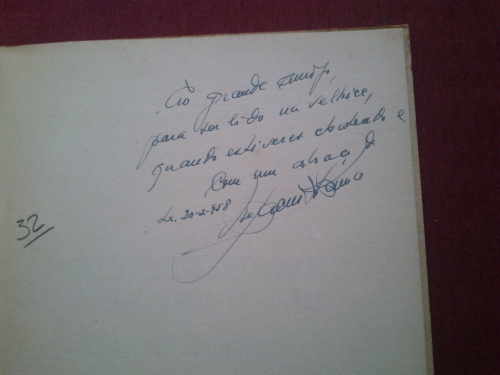 Ao grande amigo,
para ser lido na velhice,
quando estiveres chateado e
Com um abraço do
Lx. 20-2-958
32